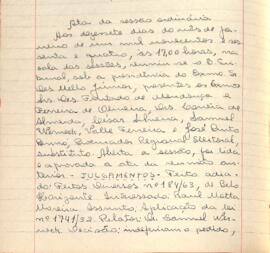 Ata da sessão ordinária
Aos dezesete dias do mês de ja-
neiro de um mil novecentos e ses-
senta e quatro, às 17,00 horas, na
sala das sessões, reuniu-se o Tri-
bunal, sob a presidência do Exmo. Sr.
Des. Mello Júnior, presentes os Exmos.
Srs. Des. Furtado de Mendonça e
Ferreira de Oliveira, Drs. Correia de
Almeida, Cesar Silveira, Samuel
Werneck, Valle Ferreira e José Pinto
Procurador Regional Eleitoral,
substituto. Aberta a sessão, foi lida
e aprovada a ata da reunião ante-
rior. - JULGAMENTOS: - Feito adia-
do: Feitos Diversos nº 184/63, de Belo
Horizonte. Interessado: Raul Motta
Moreira. Assunto: Aplicação da lei
nº 1741/52. Relator: Dr. Samuel Wer-
neck. Decisão: indeferiram o pedido,